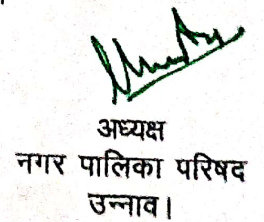 अध्यक्ष
नगर पालिका परिषद
उन्नाव।